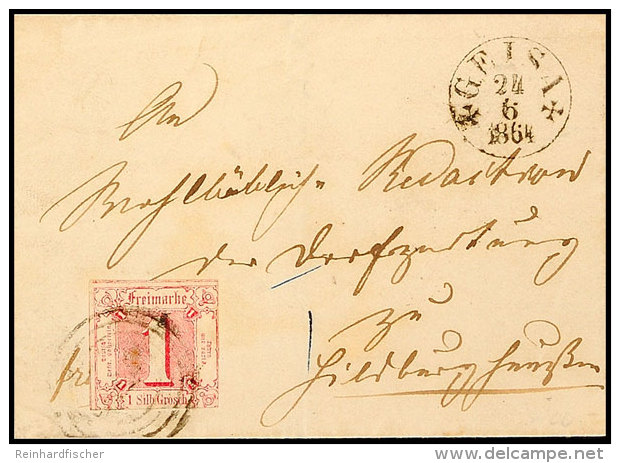 ✶ GEISA ✶
24
6
1864
An
Wohllöbliche Redaction
der Dorfzeitung
zu
Hildburghausen
fr
Freimarke
1
1 Silb. Grosch.
Reinhardfischer
delcampe.net